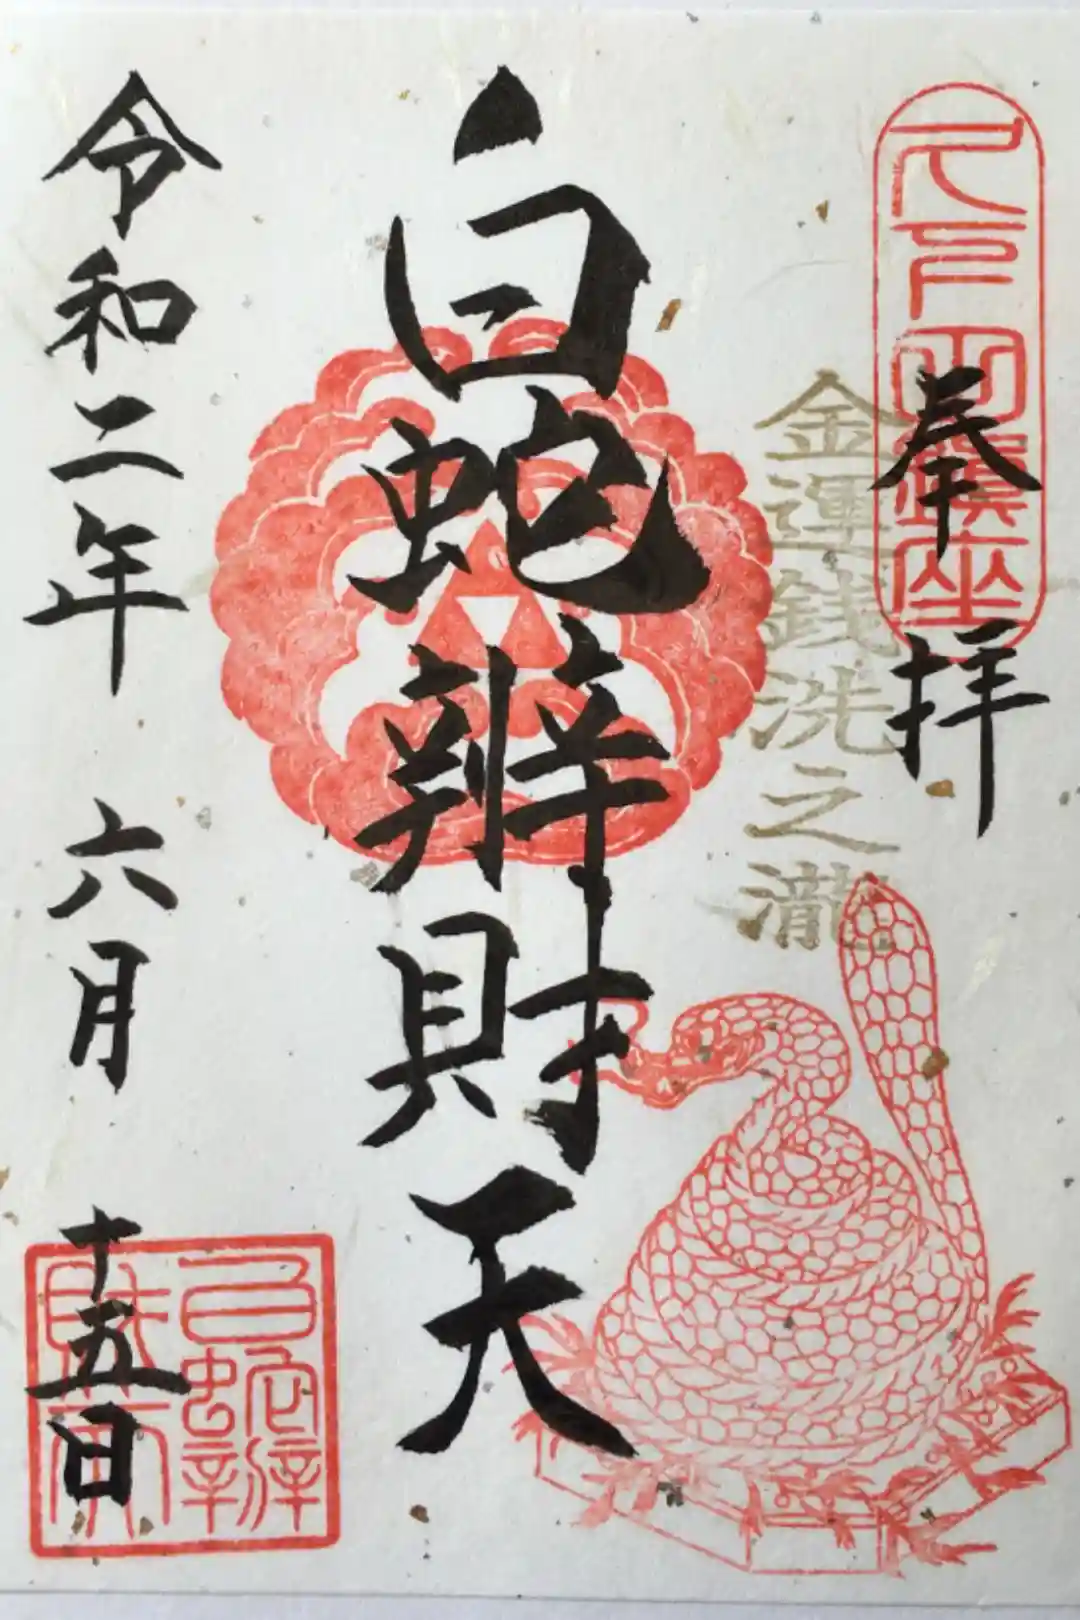 奉拝
金運銭洗之瀧
白蛇辨財天
令和二年 六月 十五日
白蛇辨財天